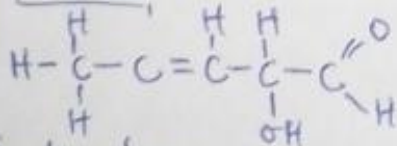 H H H O
H-C-C=C-C-C
H OH H